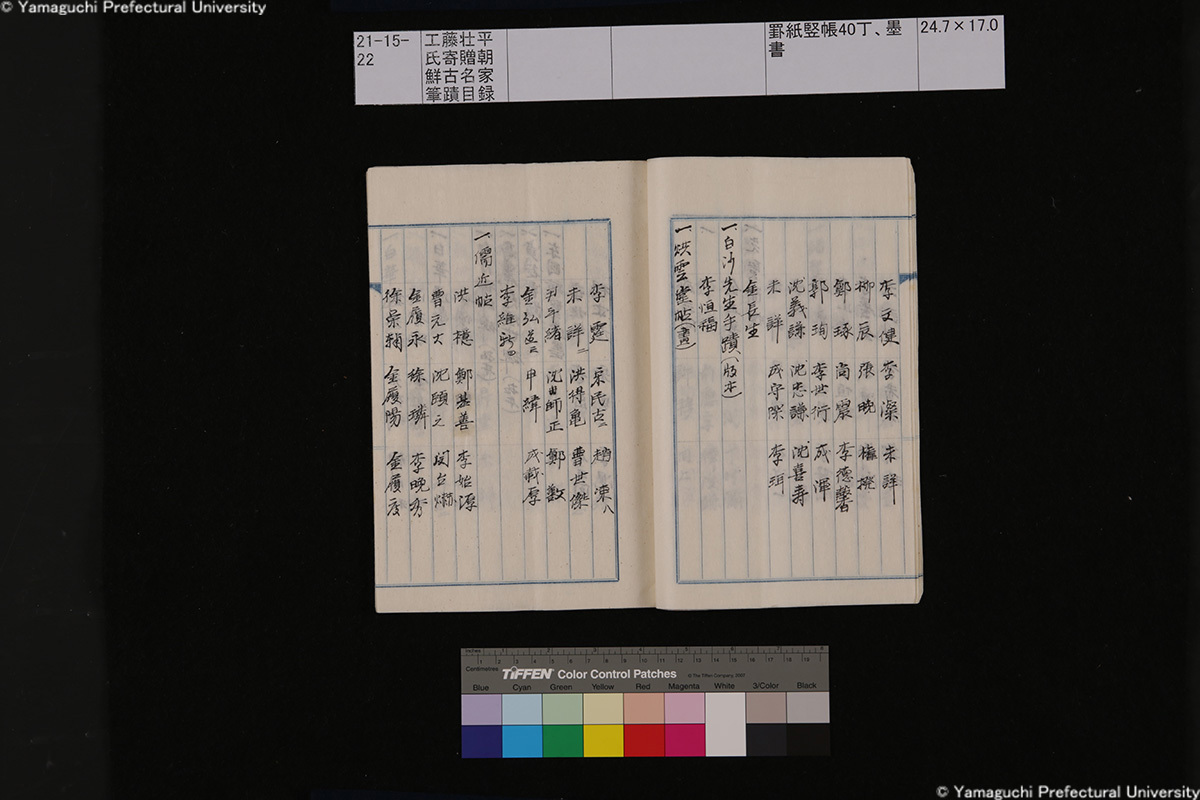 © Yamaguchi Prefectural University
21-15-
22
工藤壮平
氏寄贈朝
鮮古名家
筆蹟目録
罫紙竪帳40丁、墨
書
24.7×17.0
李文健 李澯 未詳
柳辰 張晩
鄭琢 尚震 李德馨
郭珣 李世衍 成渾
沈義謙 沈忠謙 沈喜寿
未詳 成守琛 李珥
金長生
一、白沙先生手蹟(版本)
李恒福
一、烘雲堂帖(書)
李霆 宋民古二 趙涑八
未詳二 洪得亀 曹世傑
尹平緒 沈師正 鄭敾
金弘道三 申緯 成載厚
李維新四
一、儒近帖
洪櫶 鄭基善 李始源
曹元大 沈頤之
金履永 徐璘 李晩秀
徐榮輔 金履陽 金履度
Inches
Centimetres
TIFFEN Color Control Patches
© The Tiffen Company, 2007
Blue Cyan Green Yellow Red Magenta White 3/Color Black
© Yamaguchi Prefectural University